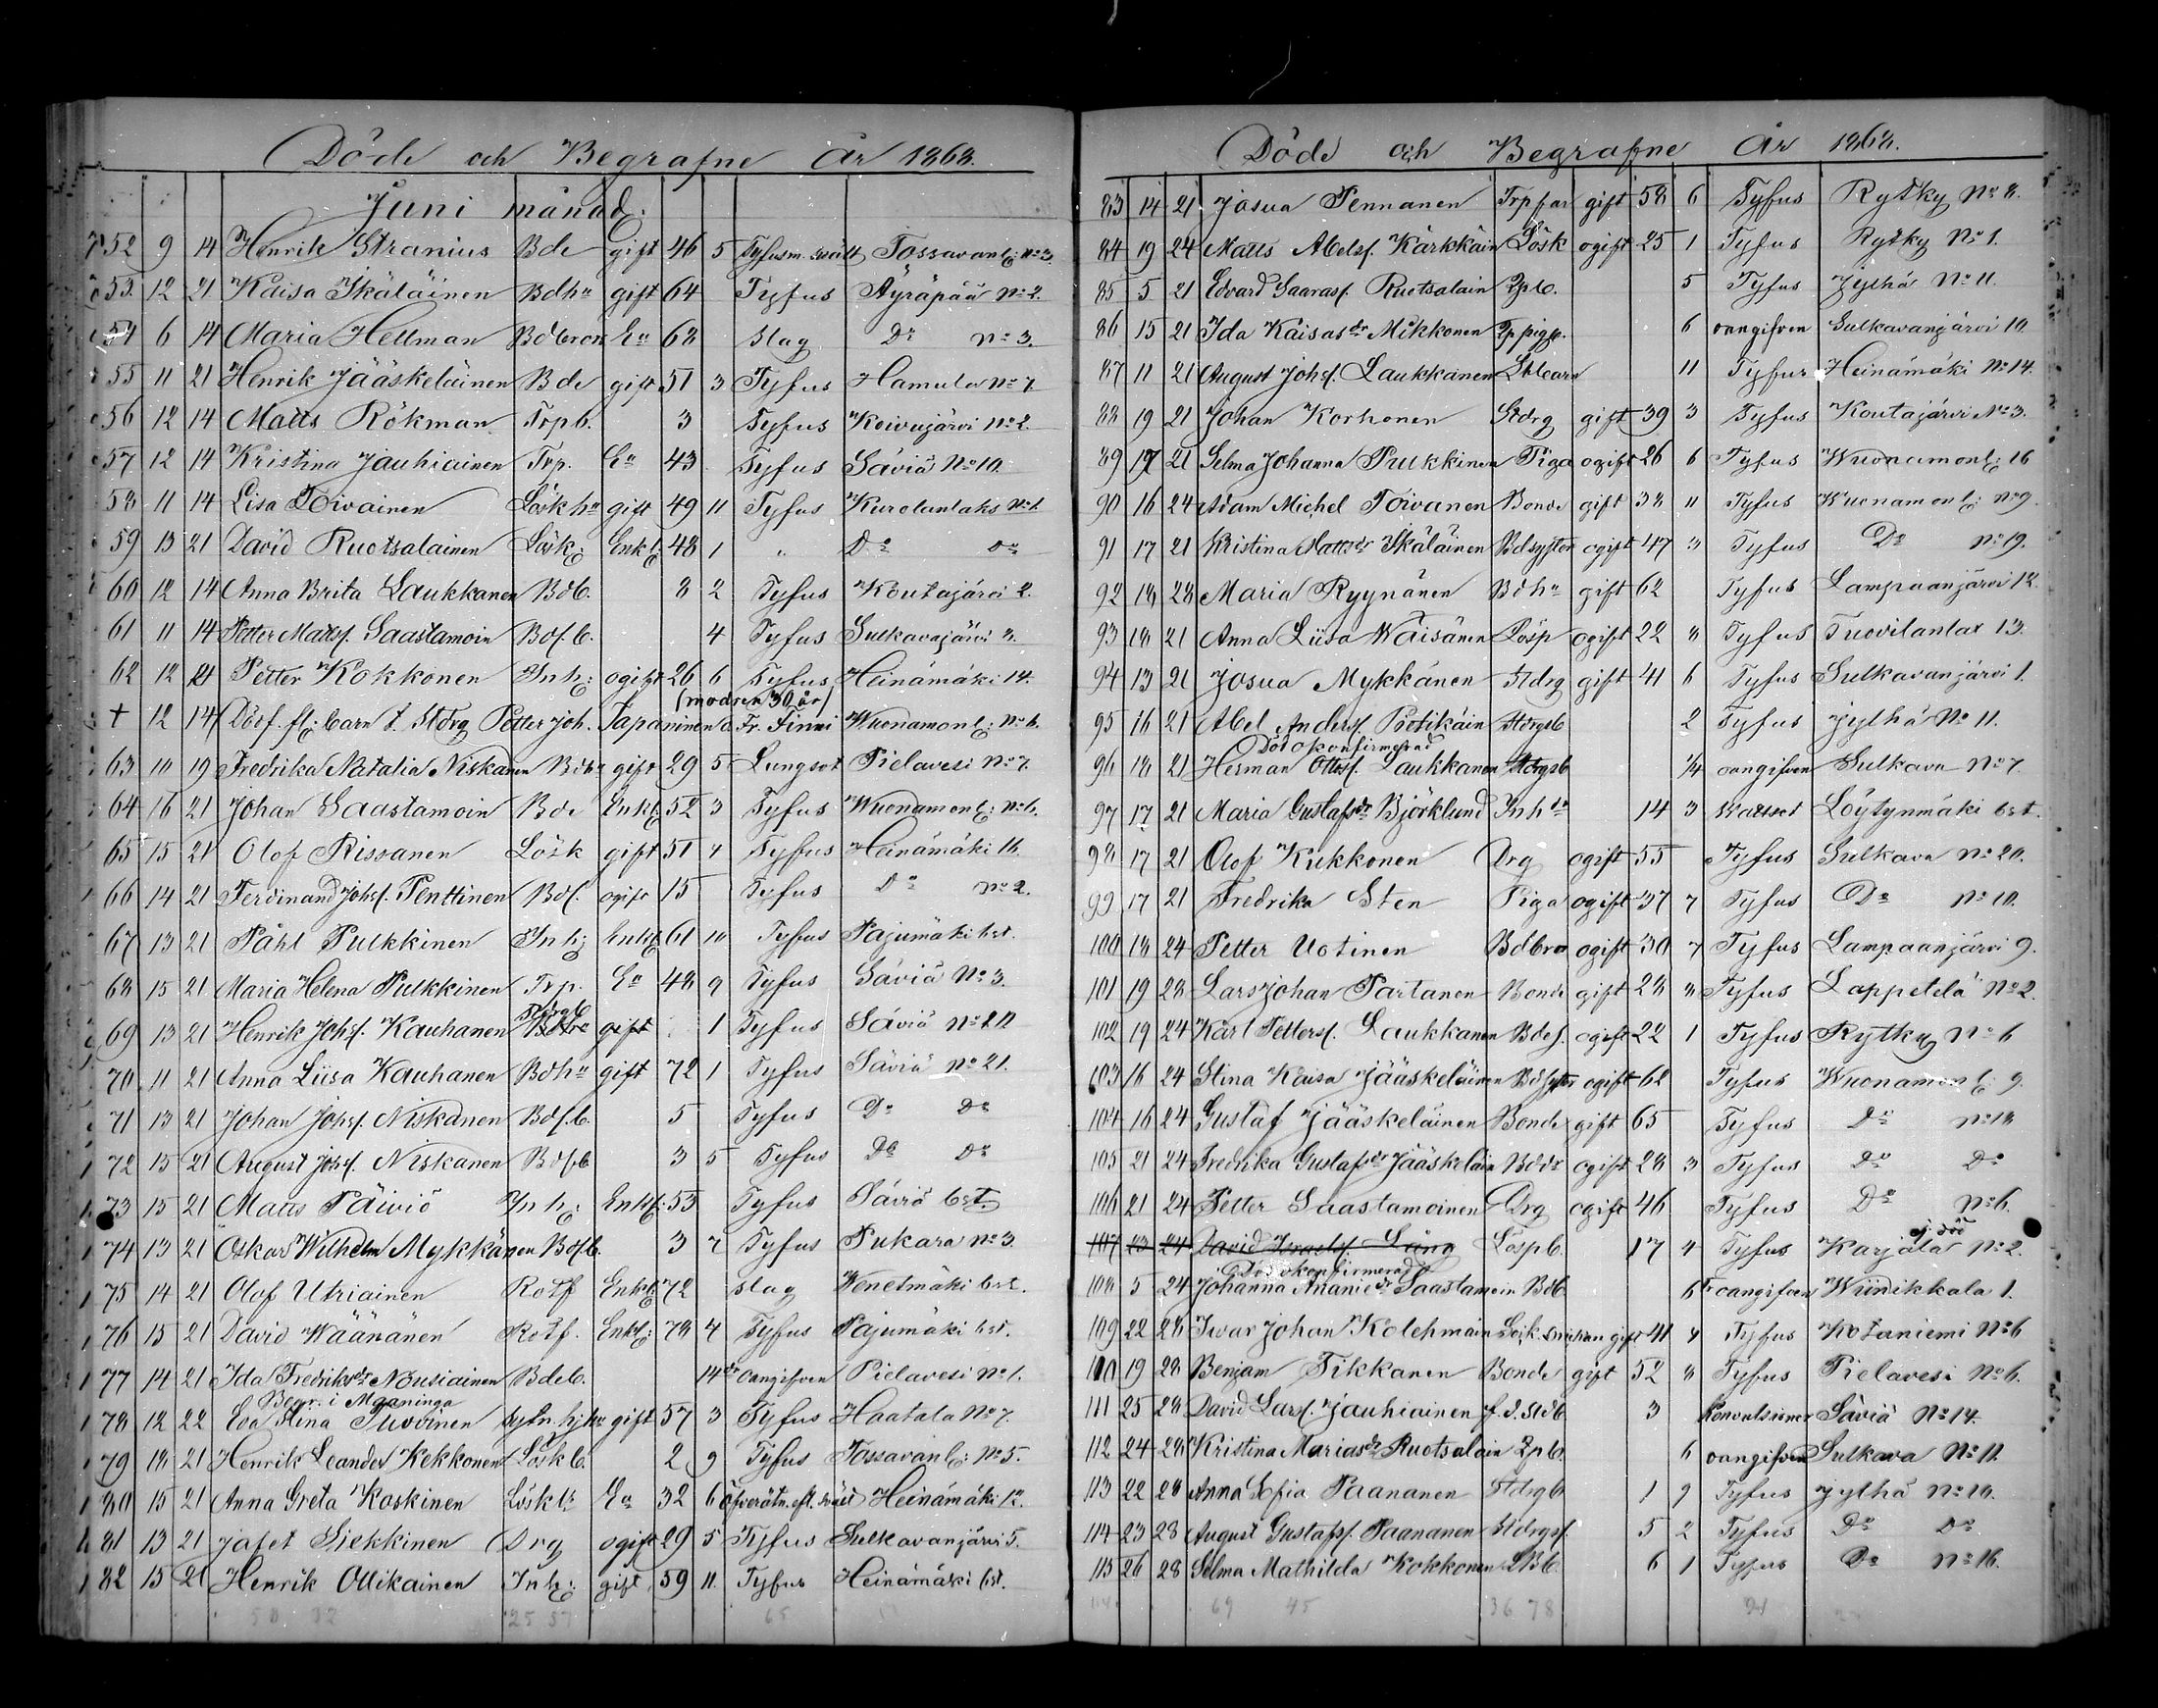 Döde och Begrafne år 1868.
Juni månad.
52 9 14 Henrik Stranius Bde gift 46 5 Tyfus m. svält Tossavanl: No 3.
53. 12 21 Kaisa Ikäläinen Bdhu gift 64 Tyfus Äyräpää No 2.
54 6 14 Maria Hellman Ea 68 slag Do No 3.
55 11 21 Henrik Jääskeläinen Bde gift 51 3 Tyfus Hamula No 7
56 12 14 Matts Rökman Trpb. 3 Tyfus Koivujärvi No 2.
57 12 14 Kristina Jauhiainen Trp. Ea 43 Tyfus Säviä No 10.
58 11 14 Lisa Toivainen Löskhu gift 49 11 Tyfus Kurolanlaks No 1.
59 13 21 David Ruotsalainen Lösk: Enkl: 48 1 " Do Do
60 12 14 Anna Brita Laukkanen Bdb. 8 2 Tyfus Koutajärvi 2.
61 11 14 Petter Matsf. Saastamoin Bdf.b. 4 Tyfus Sulkavajärvi
62 12 21 Petter Kokkonen Inh: ogift 26 6 Tyfus Heinämäki 14.
(modren 30 år)
+ 12 14 Döðf. fl: barn t. Stdrg Petter Joh. Tapaninen a Fr. Finni Wuonamonl: No 6.
63 10 19 Fredrika Natalia Niskanen gift 29 5 Lungsot Pielavesi No 7.
64 16 21 Johan Saastamoin Bde Enkl: 52 3 Tyfus Wuonamonl: No 6.
65 15 21 Olof Rissanen Lösk gift 51 4 Tyfus Heinämäki 16.
66 14 21 Ferdinand Johsf. Penttinen Bdf. ogift 15 Tyfus Do No 2.
67 13 21 Påhl Pulkkinen Inh: Enkl 61 10 Tyfus Pajumäki bst.
68 15 21 Maria Helena Pulkkinen Trp. Ea 48 9 Tyfus Säviä No 3.
Stdrgb
69 13 21 Henrik Johsf. Kauhanen gift 1 Tyfus Säviä No 20
70 11 21 Anna Liisa Kauhanen Bdhu gift 72 1 Tyfus Säviä No 21.
71 13 21 Johan Johsf. Niskanen Bdf.b. 5 Tyfus Do Do
72 15 21 August Johsf. Niskanen Bdfb 3 5 Tyfus Do Do
73 15 21 Matts Päiviö Inh: Enkl: 53 Tyfus Säviä bst.
74 13 21 Oskar Wilhelm Mykkänen Bdf.b. 3 7 Tyfus Pukara No 3.
75 14 21 Olof Utriainen Rotf Enkl: 72 slag Wenetmäki bst.
76 15 21 David Wäänänen Rotf. Enkl: 78 4 Tyfus Pajumäki bst.
77 14 21 Ida Fredriksdr Nousiainen Bdeb. 14 dr oangifven Pielavesi No 1.
Begr: i Maaninga
78 12 22 Eva Stina gift 57 3 Tyfus Haatala No 7.
79 18 21 Henrik Leander Kekkonen Löskb. 2 9 Tyfus Tossavanl: No 5.
80 15 21 Anna Greta Koskinen Ea 32 6 öfverätn. eft. svält Heinämäki 12.
81 13 21 Jafet Siekkinen Drg ogift 29 5 Tyfus Sulkavanjärvi 5.
82 15 21 Henrik Ollikainen Inh: gift 59 11. Tyfus Heinämäki bst.
Döde och Begrafne År 1868.
83 14 21 Josua Pennanen Trpfar gift 58 6 Tyfus Rytky No 8.
84 19 24 Matts Abelsf. Kärkkäin Lösk ogift 25 1 Tyfus Rytky No 1.
85 5 21 Edvard Saarasf. Ruotsalain 5 Tyfus Jylhä No 11.
86 15 21 Ida Kaisasdr Mikkonen 6 oangifven Sulkavanjärvi 10
87 11 21 August Johsf. Laukkanen 11 Tyfus Heinämäki No 14.
88 19 21 Johan Korhonen Stdrg gift 39 3 Tyfus Koutajärvi No 3.
89 17 21 Selma Johanna Pulkkinen Piga ogift 26 6 Tyfus Wuonamonl: 16
90 16 24 Adam Michel Toivanen Bonde gift 38 11 Tyfus Wuonamonl: No 9.
91 17 21 Kristina Mattsdr Ikäläinen Bdsyster ogift 47 3 Tyfus Do No 19.
92 18 28 Maria Ryynänen Bdhu gift 62 Tyfus Lampaanjärvi 12.
93 18 21 Anna Liisa Wäisänen Lösp ogift 22 8 Tyfus Tuovilanlax 13.
94 13 21 Josua Mykkänen Stdrg gift 41 6 Tyfus Sulkavanjärvi 1.
95 16 21 Abel Andersf. Stdrgsb 2 Tyfus Jylhä No 11.
Död okonfirmerad
96 18 21 Herman Ottosf. Laukkanen Stdrgsb 1/4 oangifven Sulkava No 7.
97 17 21 Maria Gustafsdr Björklund 14 3 Löytynmäki bst.
98 17 21 Olof Kukkonen Drg ogift 55 Tyfus Sulkava No 20.
99 17 21 Fredrika Sten Piga ogift 37 7 Tyfus Do No 10.
100 18 24 Petter Uotinen Bdbro ogift 30 7 Tyfus Lampaanjärvi 9.
101 19 28 Lars Johan Partanen Bonde gift 28 8 Tyfus Lappetelä No 2.
102 19 24 Karl Pettersf. Laukkanen Bdef. ogift 22 1 Tyfus Rytky No 6
103 16 24 Stina Kaisa Jääskeläinen Bdsyster ogift 62 Tyfus Wuonamonl: 9.
104 16 24 Gustaf Jääskeläinen Bonde gift 65 Tyfus Do No 18
105 21 24 Fredrika Gustafsdr Jääskeläin Bddr ogift 28 3 Tyfus Do Do
106 21 24 Petter Saastamoinen Drg ogift 46 Tyfus Do No 6.
ej död
107 23 24 David Israelsf. Lång Löspb. 17 4 Tyfus Karjala No 2.
Död okonfirmerad
108 5 24 Johanna Ananiedr Saastamoin Bdb 6 oangifven Wiinikkala 1.
109 22 28 Iwar Johan Kolehmain gift 41 4 Tyfus Kotaniemi No 6
110 19 28 Benjam Tikkanen Bonde gift 52 8 Tyfus Pielavesi No 6.
111 25 28 David Larsf. Jauhiainen 3 Konvulsioner Säviä No 14.
112 24 28 Kristina Mariasdr Ruotsalain 6 oangifven Sulkava No 11.
113 22 28 Anna Sofia Paananen Stdrgb 1 9 Tyfus Jylhä No 10.
114 23 28 August Gustafsf. Paananen Stdrgsf. 5 2 Tyfus Do Do
115 26 28 Selma Mathilda Kokkonen 6 1 Tyfus Do No 16.